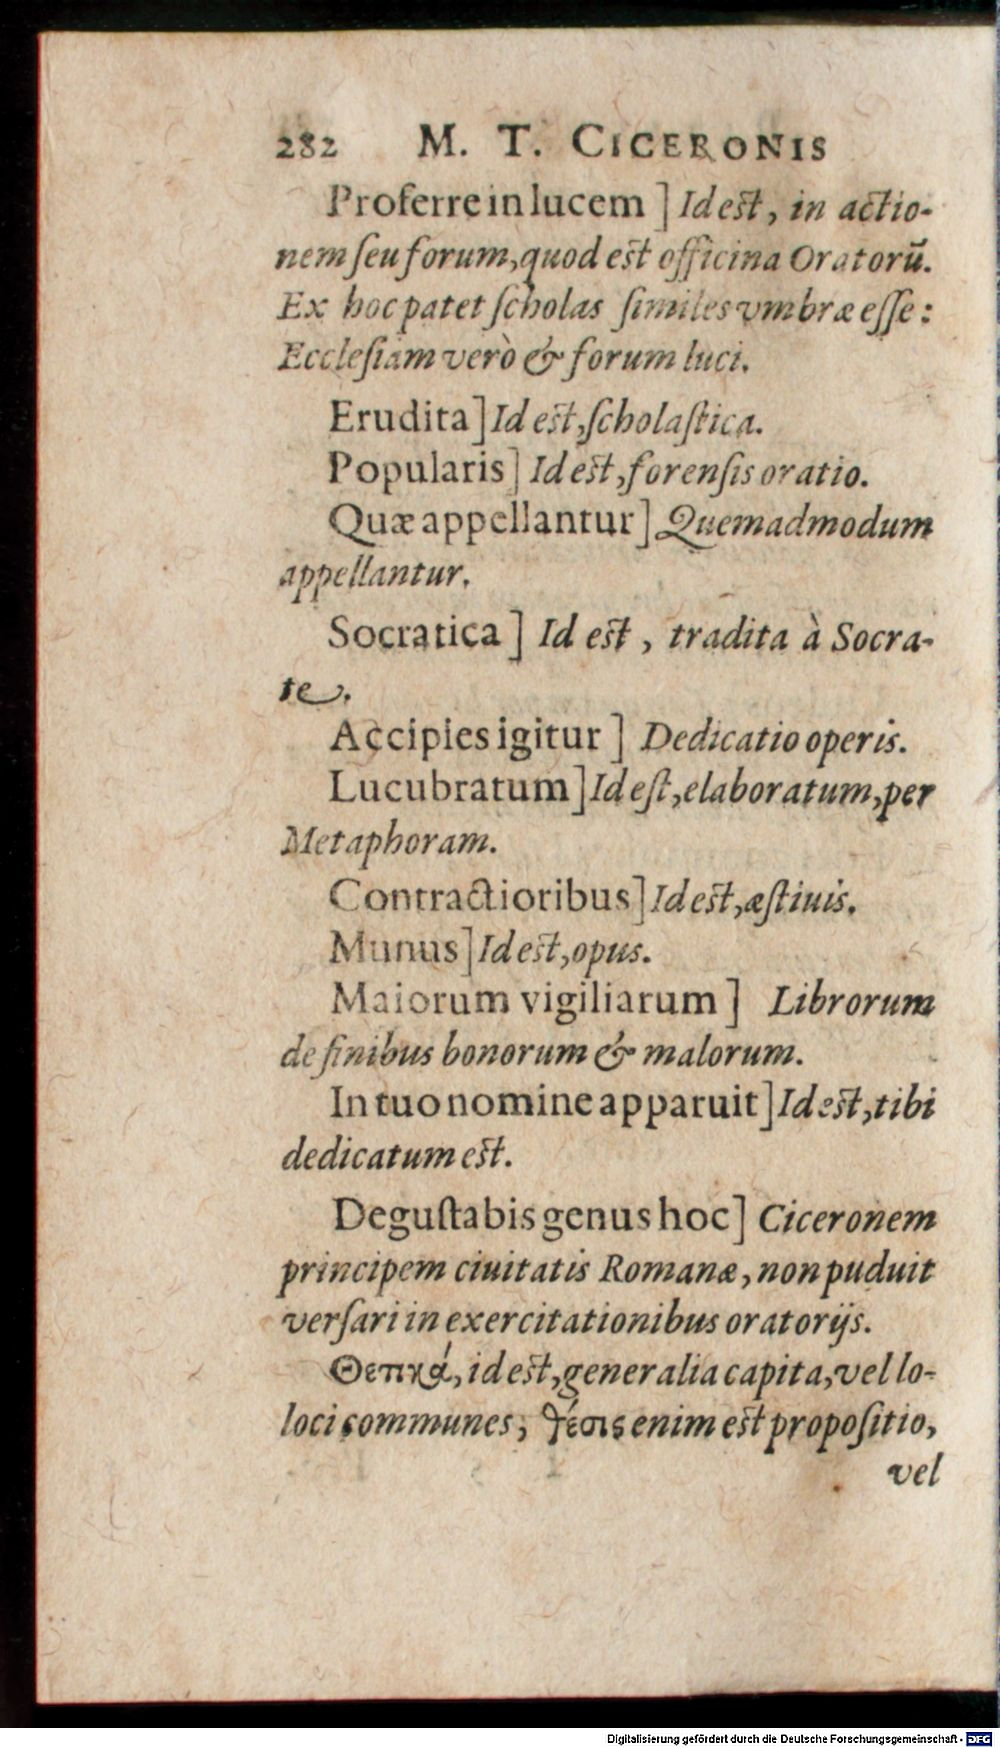 282 M. T. CICERONIS
Proferre in lucem ] Id est, in actio-
nem ſeu forum, quod est officina Oratorū.
Ex hoc patet ſcholas ſimiles vmbræ eſſe:
Eccleſiam verò & forum luci.
Erudita] Id est, ſcholaſtica.
Popularis] Id est, forenſis oratio.
Quæ appellantur] Quemadmodum
appellantur.
Socratica ] Id est, tradita à Socra-
te.
Accipies igitur ] Dedicatio operis.
Lucubratum] Id eſt, elaboratum, per
Metaphoram.
Contractioribus] Id est, æſtiuis.
Munus] Id est, opus.
Maiorum vigiliarum ] Librorum
de finibus bonorum & malorum.
In tuo nomine apparuit] Id est, tibi
dedicatum est.
Deguſtabis genus hoc] Ciceronem
principem ciuitatis Romanæ, non puduit
verſari in exercitationibus oratorijs.
Θετικά, id est, generalia capita, vel lo-
loci communes, θέσις enim est propoſitio,
vel
Digitalisierung gefördert durch die Deutsche Forschungsgemeinschaft - DFG